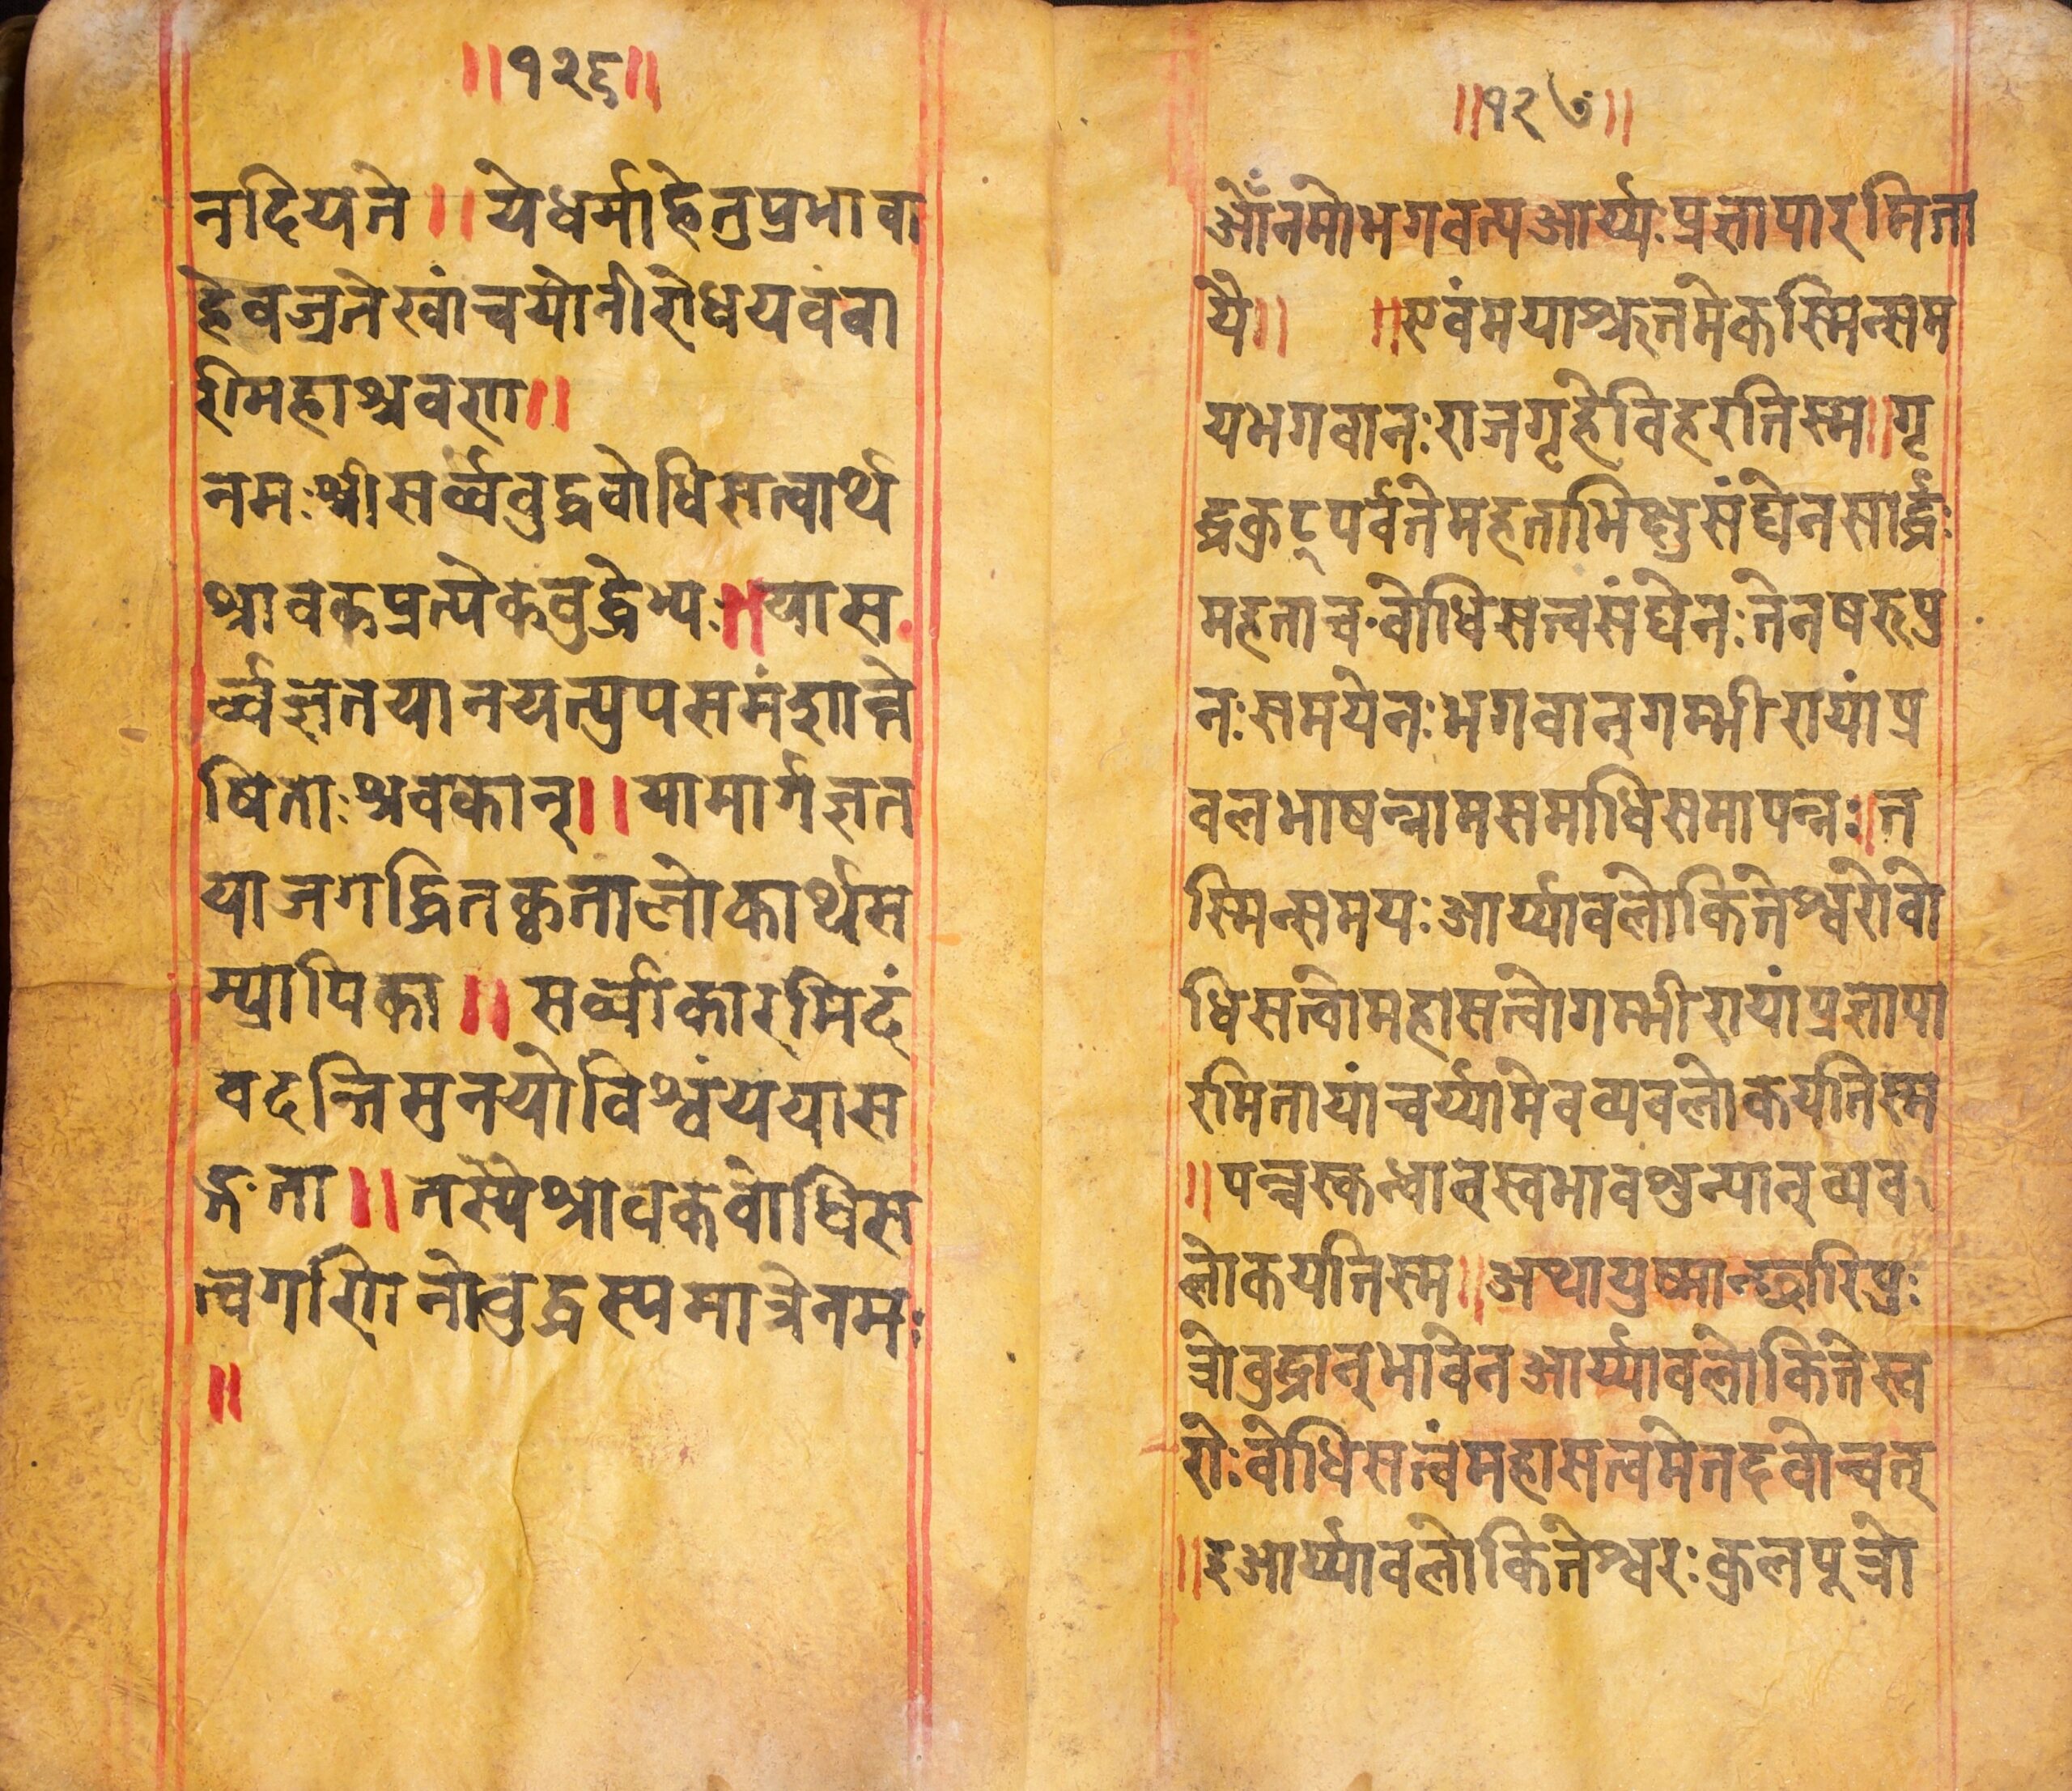 ॥१२६॥
नदियते ॥ येधर्माहेतुप्रभावा
हेवज्रतेखांचयोनीरोधयवंवा
रीमहाश्रवणा॥
नमःश्रीसर्व्ववुद्धवोधिसत्वार्थ
श्रावकप्रत्येकवुद्धेभ्यः॥यास
र्व्वज्ञतयानयत्पुपसमंशान्ते
षितःश्रवकान्॥यामार्गज्ञत
याजगद्धितकृतालोकार्थस
म्प्रापिका॥सर्व्वाकारमिदं
वदन्तिमुनयोविश्वंययास
ङ्गता॥तस्यैश्रावकवोधिस
त्वगणिनोवुद्धस्पमात्रेनमः
॥
॥१२७॥
ओँनमोभगवत्पआर्य्यःप्रज्ञापारमिता
यै॥ ॥एवंमयाश्रुतमेकस्मिन्सम
यभगवानःराजगृहेविहरतिस्म॥गृ
द्ध्रकुट्पर्वतेमहताभिक्षुसंघेनसार्द्धंः
महताचवोधिसत्वसंघेनःतेनषरूपु
नःसमयेनःभगवान्गम्भीरायांप्र
वलभाषन्नामसमाधिसमापन्नः॥त
स्मिन्समयःआर्य्यावलोकितेश्वरोवो
धिसत्वोमहासत्वोगम्भीरायांप्रज्ञापा
रमितायांचर्य्यामेवव्यवलोकयतिस्म
॥पन्चस्कन्धान्स्वभावशुन्यान्व्यव
लोकयतिस्म॥अथायुष्मान्छारिपुः
त्रोवुद्धान्भावेनआर्य्यावलोकितेस्व
रोःवोधिसत्वंमहासत्वमेतदवोचत्
॥इआर्य्यावलोकितेश्वरःकुलपूत्रो